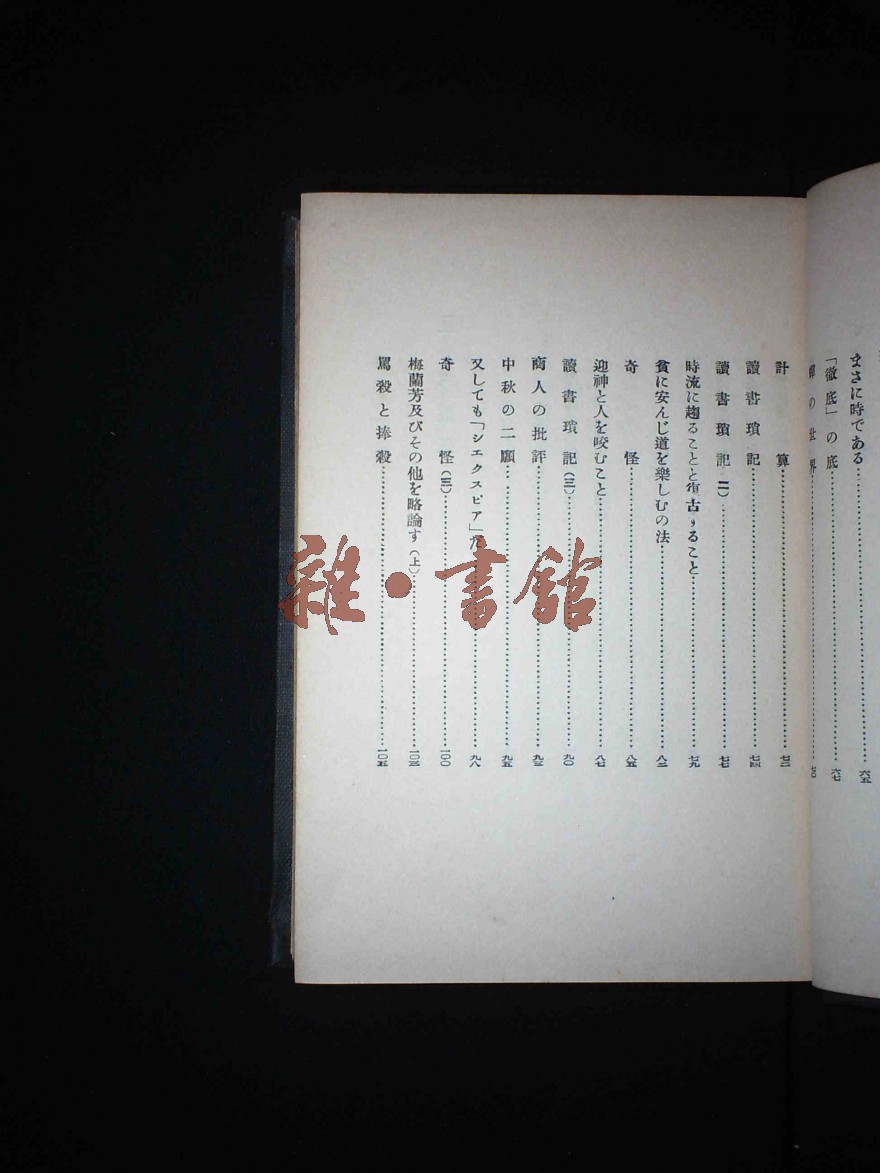 まさに時である……六五
「徹底」の底……六七
の世界……七〇
計算……七二
讀書瑣記……七四
讀書瑣記(二)……七七
時流に趨ることと復古すること……七九
貧に安んじ道を樂しむの法……八二
奇怪……八五
迎神と人を咬むこと……八七
讀書瑣記(三)……九〇
商人の批評……九三
中秋の二願……九五
又しても「シエクスピア」だ……九八
奇怪(三)……一〇〇
梅蘭芳及びその他を略論す(上)……一〇三
罵殺と捧殺……一〇五
雜·書館